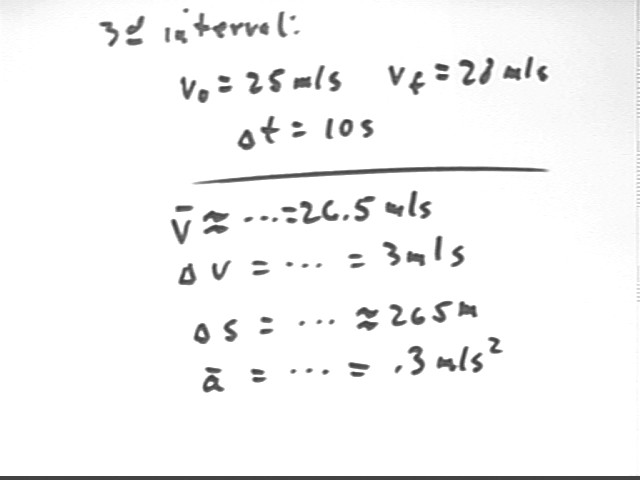 3d interval:
v₀ = 25 m/s v_f = 28 m/s
Δt = 10 s
v̄ ≈ ... = 26.5 m/s
Δv = ... = 3 m/s
Δs = ... ≈ 265 m
ā = ... = .3 m/s²